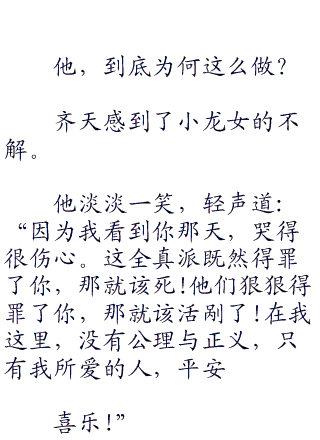 他，到底为何这么做？
齐天感到了小龙女的不
解。
他淡淡一笑，轻声道：
“因为我看到你那天，哭得
很伤心。这全真派既然得罪
了你，那就该死!他们狠狠得
罪了你，那就该活剐了!在我
这里，没有公理与正义，只
有我所爱的人，平安
喜乐!”